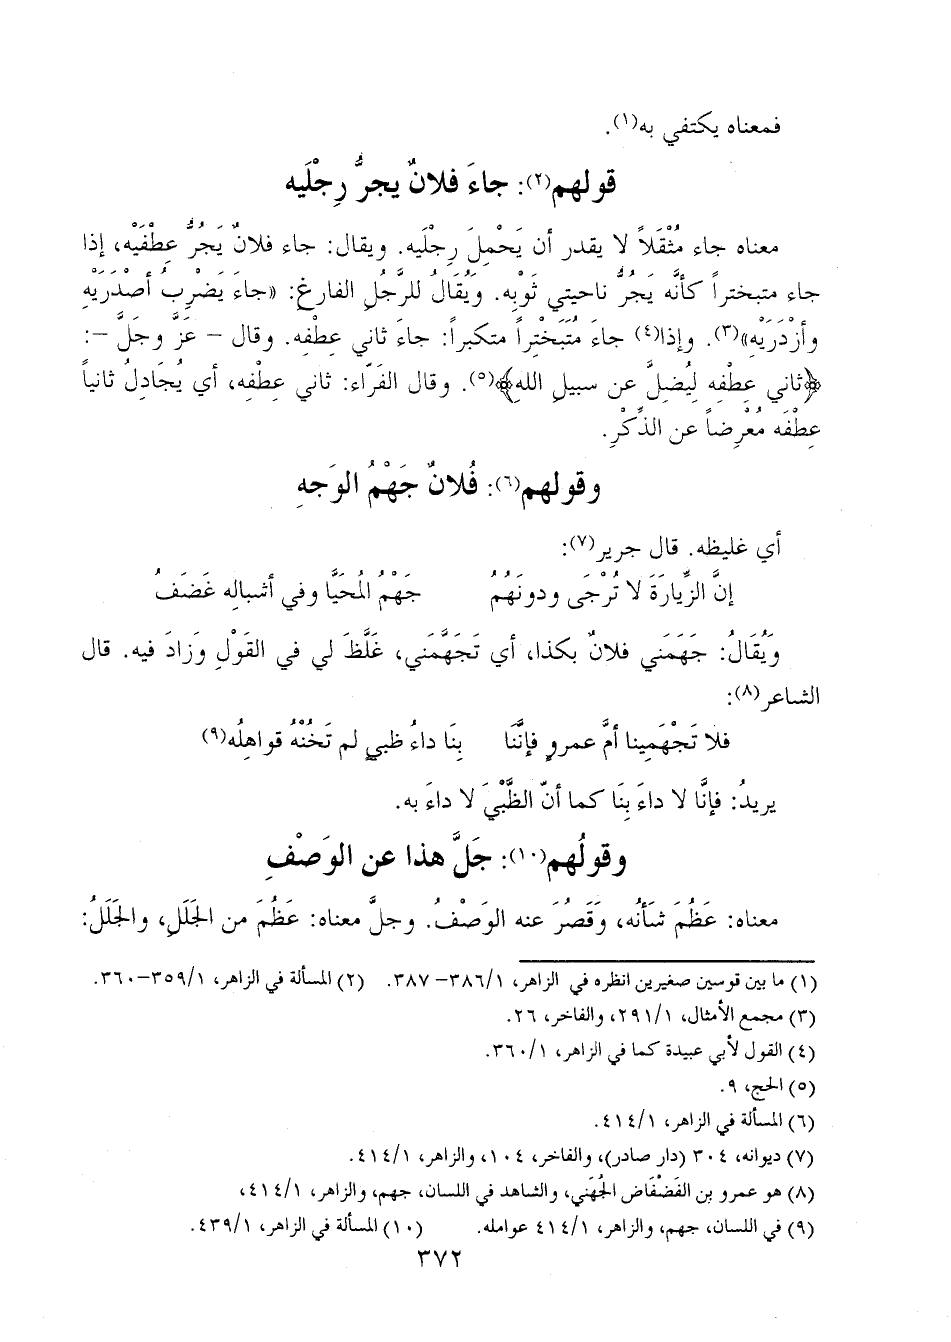 فمعناه يكتفي به(١).
قولهم(٢): جاءَ فلانٌ يجرُّ رِجْلَيه
معناه جاء مُثْقَلاً لا يقدر أن يَحْمِلَ رِجْلَيه. ويقال: جاء فلانٌ يَجُرُّ عِطْفَيْه، إذا
جاء متبختراً كأنَّه يَجُرُّ ناحيتي ثَوْبِه. وَيُقَالُ للرَّجُلِ الفارغِ: «جاءَ يَضْرِبُ أصْدَرَيْهِ
وأزْدَرَيْهِ»(٣). وإذا(٤) جاءَ مُتَبَخْتِراً متكبراً: جاءَ ثاني عِطْفِه. وقال – عَزَّ وجَلَّ –:
﴿ثاني عِطْفِه لِيُضلَّ عن سبيلِ الله﴾(٥). وقال الفَرّاء: ثاني عِطْفِه، أي يُجَادِلُ ثانياً
عِطْفَه مُعْرِضاً عن الذِّكْرِ.
وقولهم(٦): فُلانٌ جَهْمُ الوَجهِ
أي غليظه. قال جرير(٧):
إنَّ الزِّيارَةَ لا تُرْجَى ودونَهُمُ جَهْمُ المُحَيَّا وفي أشباله غَضَفُ
وَيُقَالُ: جَهَمَني فلانٌ بكذا، أي تَجَهَّمَني، غَلَّظَ لي في القَوْلِ وَزادَ فيه. قال
الشاعر(٨):
فلا تَجْهَمِينا أمَّ عمروٍ فإنَّنَا بِنَا داءُ ظبيٍ لم تَخُنْهُ قواهلُه(٩)
يريدُ: فإنَّا لا داءَ بِنَا كما أنّ الظَّبْيَ لا داءَ به.
وقولُهم(١٠): جَلَّ هذا عن الوَصْفِ
معناه: عَظُمَ شَأنُه، وَقَصُرَ عنه الوَصْفُ. وجلَّ معناه: عَظُمَ من الجَلَلِ، والجَلَلُ:
(١) ما بين قوسين صغيرين انظره في الزاهر، ٣٨٦/١–٣٨٧. (٢) المسألة في الزاهر، ٣٥٩/١–٣٦٠.
(٣) مجمع الأمثال، ٢٩١/١، والفاخر، ٢٦.
(٤) القول لأبي عبيدة كما في الزاهر، ٣٦٠/١.
(٥) الحج، ٩.
(٦) المسألة في الزاهر، ٤١٤/١.
(٧) ديوانه، ٣٠٤ (دار صادر)، والفاخر، ١٠٤، والزاهر، ٤١٤/١.
(٨) هو عمرو بن الفَضْفَاض الجُهَني، والشاهد في اللسان، جهم، والزاهر، ٤١٤/١،
(٩) في اللسان، جهم، والزاهر، ٤١٤/١ عوامله. (١٠) المسألة في الزاهر، ٤٣٩/١.
٣٧٢